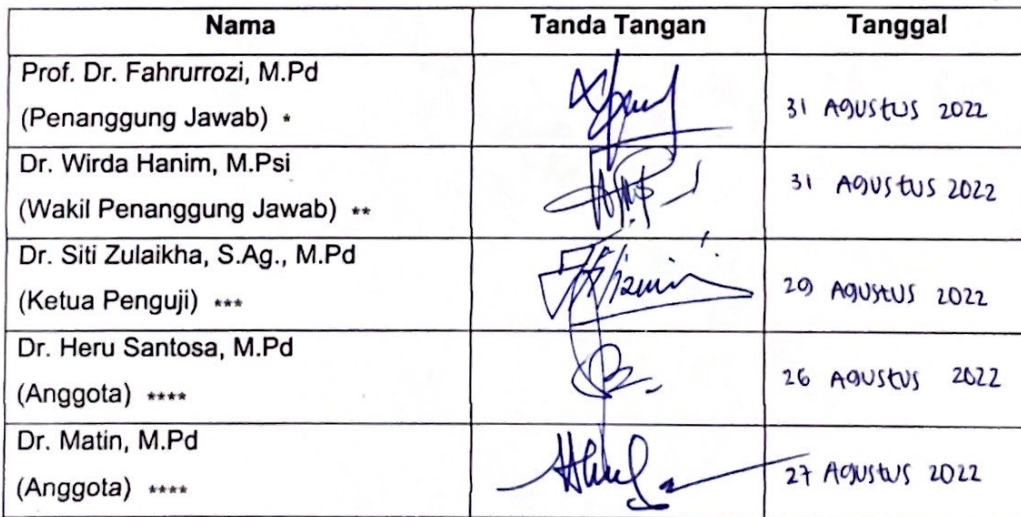 Nama Tanda Tangan Tanggal
Prof. Dr. Fahrurrozi, M.Pd
(Penanggung Jawab) *
31 Agustus 2022
Dr. Wirda Hanim, M.Psi
(Wakil Penanggung Jawab) **
31 Agustus 2022
Dr. Siti Zulaikha, S.Ag., M.Pd
(Ketua Penguji) ***
29 Agustus 2022
Dr. Heru Santosa, M.Pd
(Anggota) ****
26 Agustus 2022
Dr. Matin, M.Pd
(Anggota) ****
27 Agustus 2022